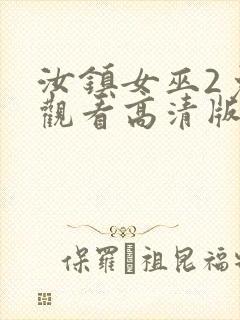 汝鎮女巫2
觀看高清版
保羅·祖昆福